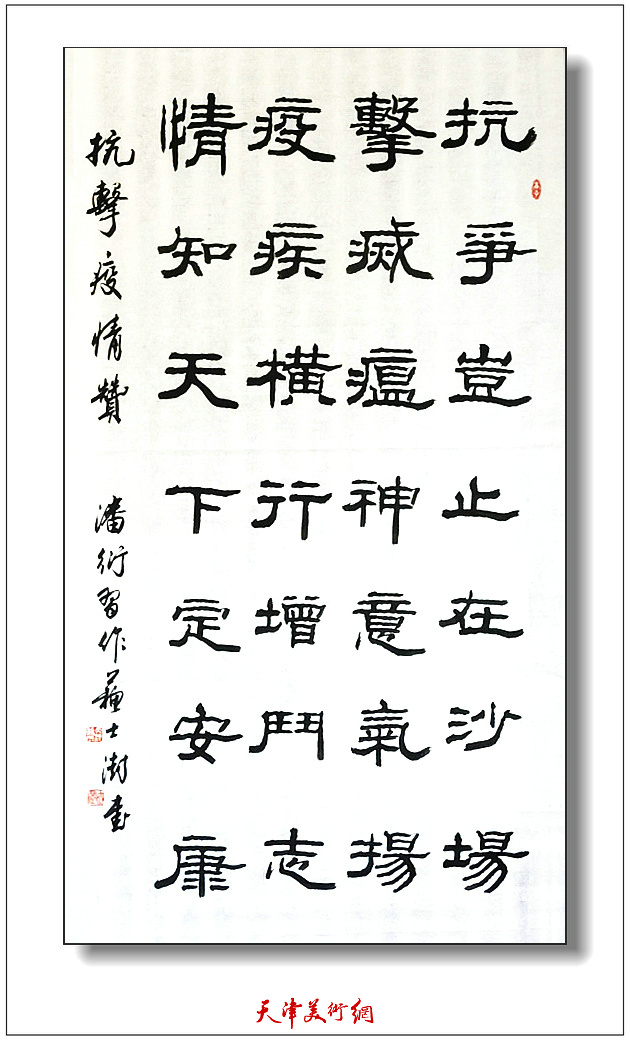 抗爭豈止在沙場
擊滅瘟神意氣揚
疫疾橫行增鬥志
情知天下定安康
抗擊疫情贊 潘衍習作 蘇士澍書
天津美術網